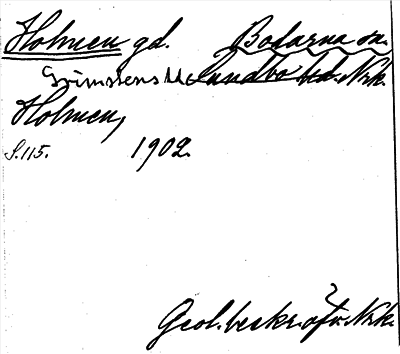 Holmen gd. Bodarna sn.
Grimstens hd. Nrk.
Holmen,
S. 115. 1902.
Geol. beskr. öfv. Nrk.